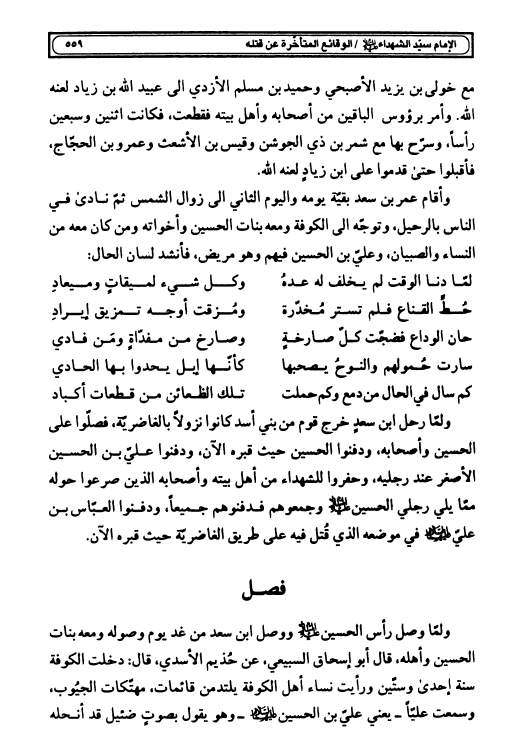 الإمام سيّد الشهداء عليه السلام / الوقائع المتأخّرة عن قتله ٥٥٩
مع خولى بن يزيد الأصبحي وحميد بن مسلم الأزدي الى عبيد الله بن زياد لعنه
الله. وأمر برؤوس الباقين من أصحابه وأهل بيته فقطعت، فكانت اثنين وسبعين
رأساً، وسرّح بها مع شمر بن ذي الجوشن وقيس بن الأشعث وعمرو بن الحجّاج،
فأقبلوا حتىٰ قدموا على ابن زيادٍ لعنه الله.
وأقام عمر بن سعد بقيّة يومه واليوم الثاني الى زوال الشمس ثمّ نادىٰ في
الناس بالرحيل، وتوجّه الى الكوفة ومعه بنات الحسين وأخواته ومن كان معه من
النساء والصبيان، وعليّ بن الحسين فيهم وهو مريض، فأنشد لسان الحال:
لمّا دنا الوقت لم يخلف له عدةُ وكـل شيءٍ لمـيقاتٍ ومـيعادِ
حُطَّ القناع فلم تستر مُخدّرة ومُزقت أوجـه تـمزيق إبـرادِ
حان الوداع فضجّت كلّ صارخةٍ وصارخ من مفدّاةٍ ومَن فادي
سارت حُمولهم والنوحُ يصحبها كأنّـها إبل يـحدوا بـها الحادي
كم سال في الحال من دمع وكم حملت تـلك الظـعائن مـن قـطعات أكبادِ
ولمّا رحل ابن سعدٍ خرج قوم من بني أسد كانوا نزولاً بالغاضريّة، فصلّوا على
الحسين وأصحابه، ودفنوا الحسين حيث قبره الآن، ودفنوا عليّ بن الحسين
الأصغر عند رجليه، وحفروا للشهداء من أهل بيته وأصحابه الذين صرعوا حوله
ممّا يلي رجلي الحسين عليه السلام وجمعوهم فدفنوهم جميعاً، ودفنوا العبّاس بن
عليّ عليه السلام في موضعه الذي قُتل فيه على طريق الغاضريّة حيث قبره الآن.
فصل
ولمّا وصل رأس الحسين عليه السلام ووصل ابن سعد من غد يوم وصوله ومعه بنات
الحسين وأهله، قال أبو إسحاق السبيعي، عن حُذيم الأسدي، قال: دخلت الكوفة
سنة إحدىٰ وستّين ورأيت نساء أهل الكوفة يلتدمن قائمات، مهتّكات الجيُوب،
وسمعت عليّاً ـ يعني عليّ بن الحسين عليه السلام ـ وهو يقول بصوتٍ ضئيل قد أنحله